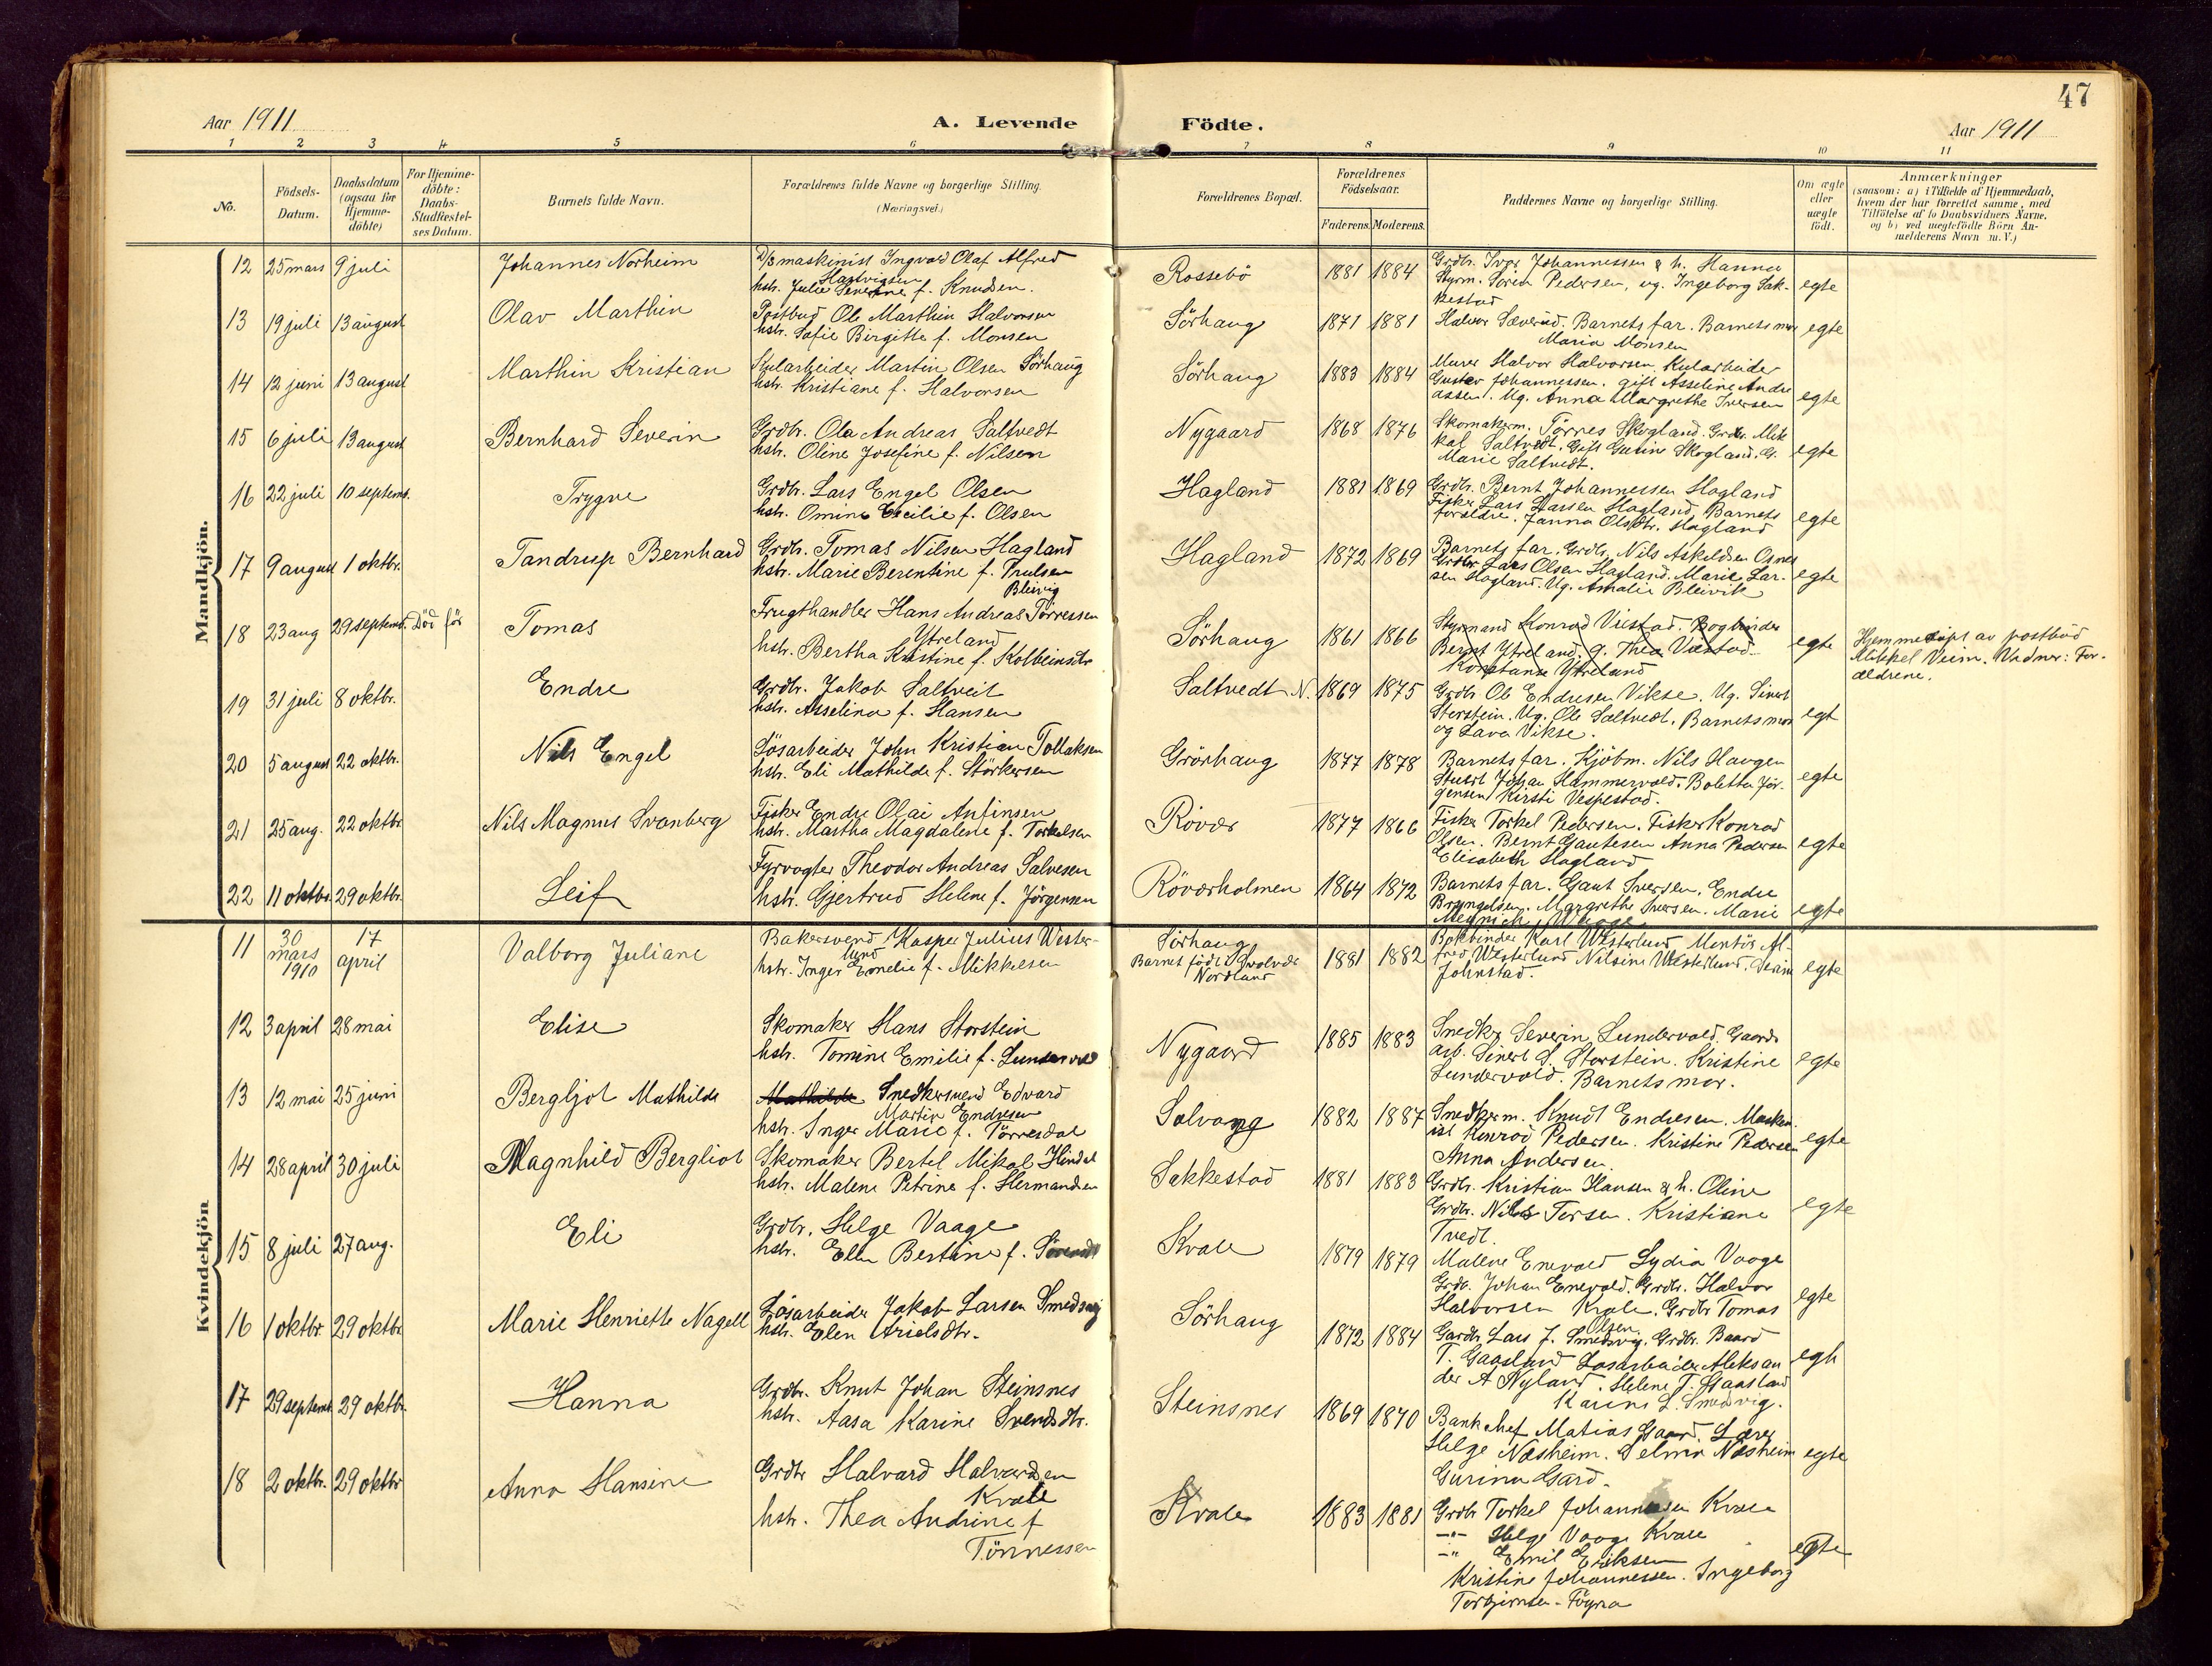 47
Aar 1911
A. Levende Födte.
Aar 1911
1 2 3 4 5 6 7 8 9 10 11
No.
Födsels-
Datum.
Daabsdatum
(ogsaa for
Hjemme-
döbte)
For Hjemme-
döbte:
Daabs-
Stadfæstel-
ses Datum.
Barnets fulde Navn.
Forældrenes fulde Navne og borgerlige Stilling.
(Næringsvei.)
Forældrenes Bopæl.
Forældrenes
Födselsaar.
Faderens. Moderens.
Faddernes Navne og borgerlige Stilling.
Om ægte
eller
uægte
födt.
Anmærkninger
(saasom: a) i Tilfælde af Hjemmedaab,
hvem der har forrettet samme, med
Tilföielse af to Daabsvidners Navne,
og b) ved uægtefödte Börn An-
melderens Navn m. V.)
Mandkjön.
12 25 mars 9 juli
Johannes Norheim
D/s maskinist Ingvald Olaf Alfred
Hartvigsen
hstr. Julie Severine f. Knudsen.
Rossebö
1881 1884
Grdbr. Ivar Johannessen & h. Hanna
Styrm. Sören Pedersen, ug. Ingeborg Sak-
kestad
egte
13 19 juli 13 august
Olav Marthin
Postbud Ole Marthin Halvorsen
hstr. Sofie Birgitte f. Monsen
Sörhaug
1871 1881
Halvor Sæverud. Barnets far. Barnets mor
Maria Monsen
egte
14 12 juni 13 august
Marthin Kristian
Kularbeider Martin Olsen Sörhaug
hstr. Kristiane f. Halvorsen
Sörhaug
1883 1884
Murer Halvor Halvorsen, Kularbeider
Gustav Johannessen. gift Asseline Andre
assen. Ug. Anna Margrethe Iversen
egte
15 6 juli 13 august
Bernhard Severin
Grdbr. Ola Andreas Saltvedt
hstr. Oline Josefine f. Nilsen
Nygaard
1868 1876
Skomakerm. Törres Skogland. Grdbr. Mik
kal Saltvedt. Gift Gurine Skogland. G.
Marie Saltvedt.
egte
16 22 juli 10 septemb.
Trygve
Grdbr. Lars Engel Olsen
hstr. Omine Cecilie f. Olsen
Hagland
1881 1869
Grdbr. Bernt Johannessen Hagland
Fisker Lars Larsen Hagland, Barnets
foreldre. Janna Olsdtr. Hagland
egte
17 9 august 1 oktbr.
Tandrup Bernhard
Grdbr. Tomas Nilsen Hagland
hstr. Marie Berentine f. Trulsen
Bleivig
Hagland
1872 1869
Barnets far. Grdbr. Nils Askildsen Osnes
Grdbr. Lars Olsen Hagland. Marie Lar-
sen Hagland. Ug. Amalie Bleivik
egte
18 23 aug 29 septemb. Död för
Tomas
Frugthandler Hans Andreas Törressen
Ytreland
hstr. Bertha Kristine f. Kolbeinsdtr
Sörhaug
1861 1866
Styrmand Konrad Viestad. Bogbinder
Bernt Ytreland. g. Thea Viestad.
Konstanse Ytreland
egte
Hjemmedöpt av postbud
Mikkel Veim. Vidner: For-
ældrene.
19 31 juli 8 oktbr.
Endre
Grdbr. Jakob Saltveit
hstr. Asselina f. Hansen
Saltvedt N.
1869 1875
Grdbr. Ole Endresen Vikse. Ug. Sivert
Storstein. Ug. Ole Saltvedt. Barnets mor
og Lava Vikse.
egt
20 5 august 22 oktbr.
Nils Engel
Lösarbeider John Kristian Tollaksen
hstr. Eli Mathilde f. Störkersen
Grörhaug
1877 1878
Barnets far. Kjöbm. Nils Haugen
Stuert Johan Hammervold. Boletta Jör-
gensen, Kirsti Vespestad.
egte
21 25 aug. 22 oktbr
Nils Magnus Svanberg
Fisker Endre Olai Anfinsen
hstr. Martha Magdalene f. Torkelsen
Rövær
1877 1866
Fisker Torkel Pedersen. Fisker Konrad
Olsen. Bernt Gautesen Anna Pedersen
Elisabeth Hagland
egte
22 11 oktbr. 29 oktbr.
Leif
Fyrvogter Theodor Andreas Salvesen
hstr. Gjertrud Helene f. Jörgensen
Röværholmen
1864 1872
Barnets far. Gaut Iversen. Endre
Bryngelsen. Margrethe Iversen. Marie
egte
Kvindekjön
11 30 mars 1910 17 april
Valborg Juliane
Bakersvend Kasper Julius Wester-
lund
hstr. Inger Emelie f. Mikkelsen
Sörhaug
Barnet födt i Svolvær
Nordland
1881 1882
Bokbinder Karl Westerlund Montör Al-
fred Westerlund Nilsine Westerlund.
Johnstad.
egte
12 3 april 28 mai
Elise
Skomaker Hans Storstein
hstr. Tomine Emilie f. Sundervold
Nygaard
1885 1883
Snedker Severin Sundervold. Gaards
arb. Sivert S. Storstein. Kristine
Sundervold. Barnets mor.
egte
13 12 mai 25 juni
Bergljot Mathilde
Mathilde Snedkersvend Edvard
Martin Endresen
hstr. Inger Marie f. Törresdal
Solvang
1882 1887
Snedkerm. Knudt Endresen. Maskin
ist Konrad Pedersen. Kristine Pedersen
Anna Andersen.
egte
14 28 april 30 juli
Magnhild Bergliot
Skomaker Bertel Mikal Hindal
hstr. Malene Petrine f. Hermandsen
Sakkestad
1881 1883
Grdbr. Kristian Hansen & h. Oline
Grdbr. Nils Torsen. Kristiane
Tvedt.
egte
15 8 juli 27 aug.
Eli
Grdbr. Helge Vaage
hstr. Ellen Bertine f.
Kvale
1879 1879
Malene Enevold Lydia Vaage
Grdbr. Johan Enevold. Grdbr. Halvor
Halvorsen Kvale. Grdbr Tomas
Olsen
egte
16 1 oktbr. 29 oktbr
Marie Henriette Nagell
Lösarbeider Jakob Larsen Smedsvig
hstr. Elen Arielsdtr.
Sörhaug
1872 1884
Gardbr. Lars J. Smedsvig. Grdbr. Baard
T. Gaasland Losarbeider Aleksan
der A Nyland. Helene T. Gaasland
Karine L. Smedsvig.
egte
17 29 septemb. 29 oktbr.
Hanna
Grdbr. Knut Johan Steinsnes
hstr. Aasa Karine Svendsdtr.
Steinsnes
1869 1870
Bankchef Matias Gaard. Lærer
Helge Næsheim. Selma Næsheim
Gurina Gård.
egte
18 2 oktbr. 29 oktbr
Anna Hansine
Grdbr Halvard Halvardsen
Kvale
hstr. Thea Andrine f
Tönnessen
Kvale
1883 1881
Grdbr Torkel Johannesen Kvale
-"- Helge Vaage Kvale
-"- Emil Eriksen
Kristine Johannessen. Ingeborg
Torbjörnsen - Föyna
egte